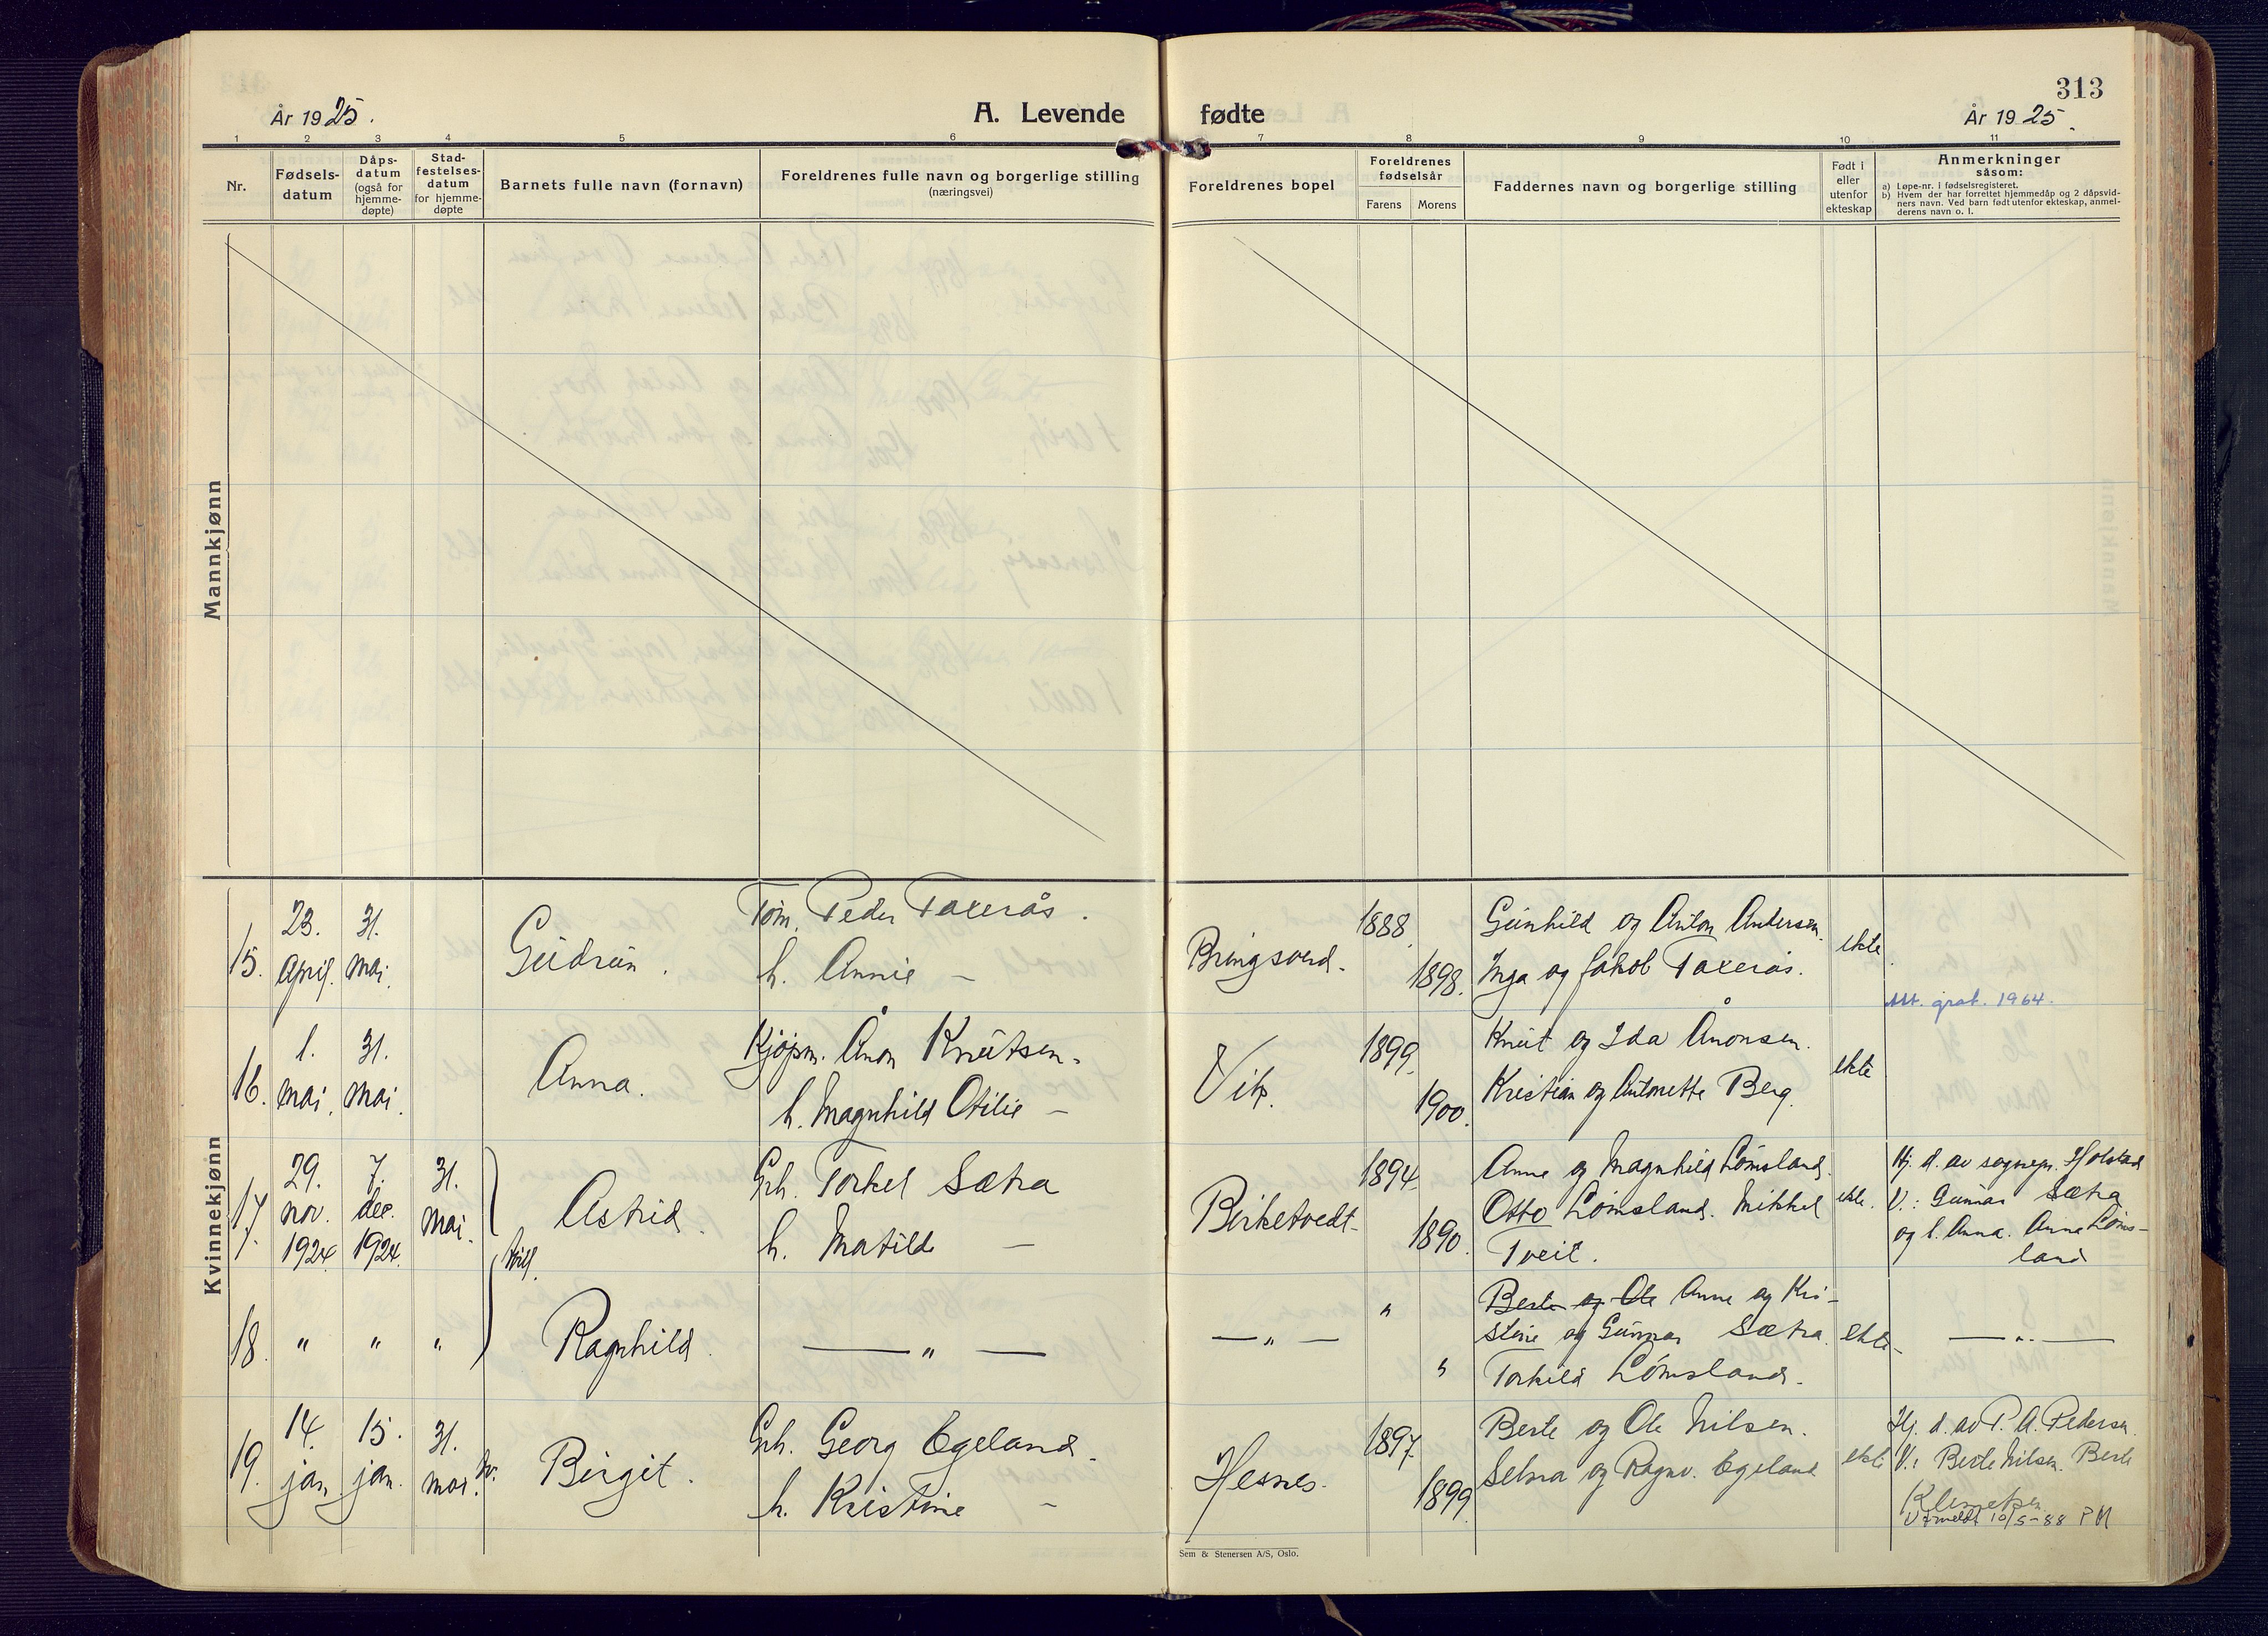 313
År 1925.
A. Levende fødte
År 1925.
1 2 3 4 5 6 7 8 9 10 11
Nr.
Fødsels-
datum
Dåps-
datum
(også for
hjemme-
døpte)
Stad-
festelses-
datum
for hjemme-
døpte
Barnets fulle navn (fornavn)
Foreldrenes fulle navn og borgerlige stilling
(næringsvei)
Foreldrenes bopel
Foreldrenes
fødselsår
Farens Morens
Faddernes navn og borgerlige stilling
Født i
eller
utenfor
ekteskap
Anmerkninger
såsom:
a) Løpe-nr. i fødselsregisteret.
b) Hvem der har forrettet hjemmedåp og 2 dåpsvid-
ners navn. Ved barn født utenfor ekteskap, anmel-
derens navn o. l.
Mannkjønn
Kvinnekjønn
15.
23.
April.
31.
Mai.
Gudrun.
Tøm. Peder Taxerås.
h. Annie —
Bringsverd.
1888.
1898.
Gunhild og Anton Andersen.
Inga og Jakob Taxerås.
ekte.
Att. grat. 1964.
16.
1.
Mai.
31.
Mai.
Anna.
Kjøpm. Ånon Knutsen.
h. Magnhild Otilie —
Vik.
1899.
1900.
Knut og Ida Ånonsen.
Kristian og Antonette Berg.
ekte
17.
29.
nov.
1924.
7.
dec.
1924.
31.
Mai.
Astrid.
Gbr. Torkel Sætra
h. Matilde —
Birketvedt.
1894.
1890.
Anne og Magnhild Lømsland.
Otto Lømsland. Mikkel
Tveit.
ekte.
Hj. d. av sognepr. Holstad
V.: Gunnar Sætra
og l. Anna. Anne Løms-
land
Tvill.
18.
" " "
Ragnhild.
— " —
— " —
"
"
Berte og Ole Anne og Kri-
stine og Gunnar Sætra.
Torkild Lømsland.
ekte.
— " —
19.
14.
jan.
15.
jan.
31.
Mai.
Birgit.
Gbr. Georg Egeland.
h. Kristine —
Hesnes.
1897.
1899.
Berte og Ole Nilsen.
Selma og Ragnv. Egeland
ekte
Hj. d. av P. A. Pedersen.
V.: Berte Nilsen. Berte
Klemetsen.
Utmeldt 10/5-88 PM
Sem & Stenersen A/S, Oslo.